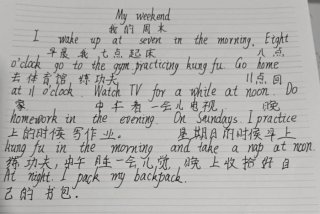 My weekend
我的周末
I wake up at seven in the morning. Eight
早晨我七点起床 八点
o'clock go to the gym practicing kung fu. Go home
去体育馆练功夫 11点回
at 11 o'clock. Watch TV for a while at noon. Do
家 中午看一会儿电视, 晚
homework in the evening. On Sundays. I practice
上的时候写作业。 星期日的时候早上
kung fu in the morning and take a nap at noon.
练功夫,中午睡一会儿觉 晚上收拾好自
At night. I pack my backpack.
己的书包.